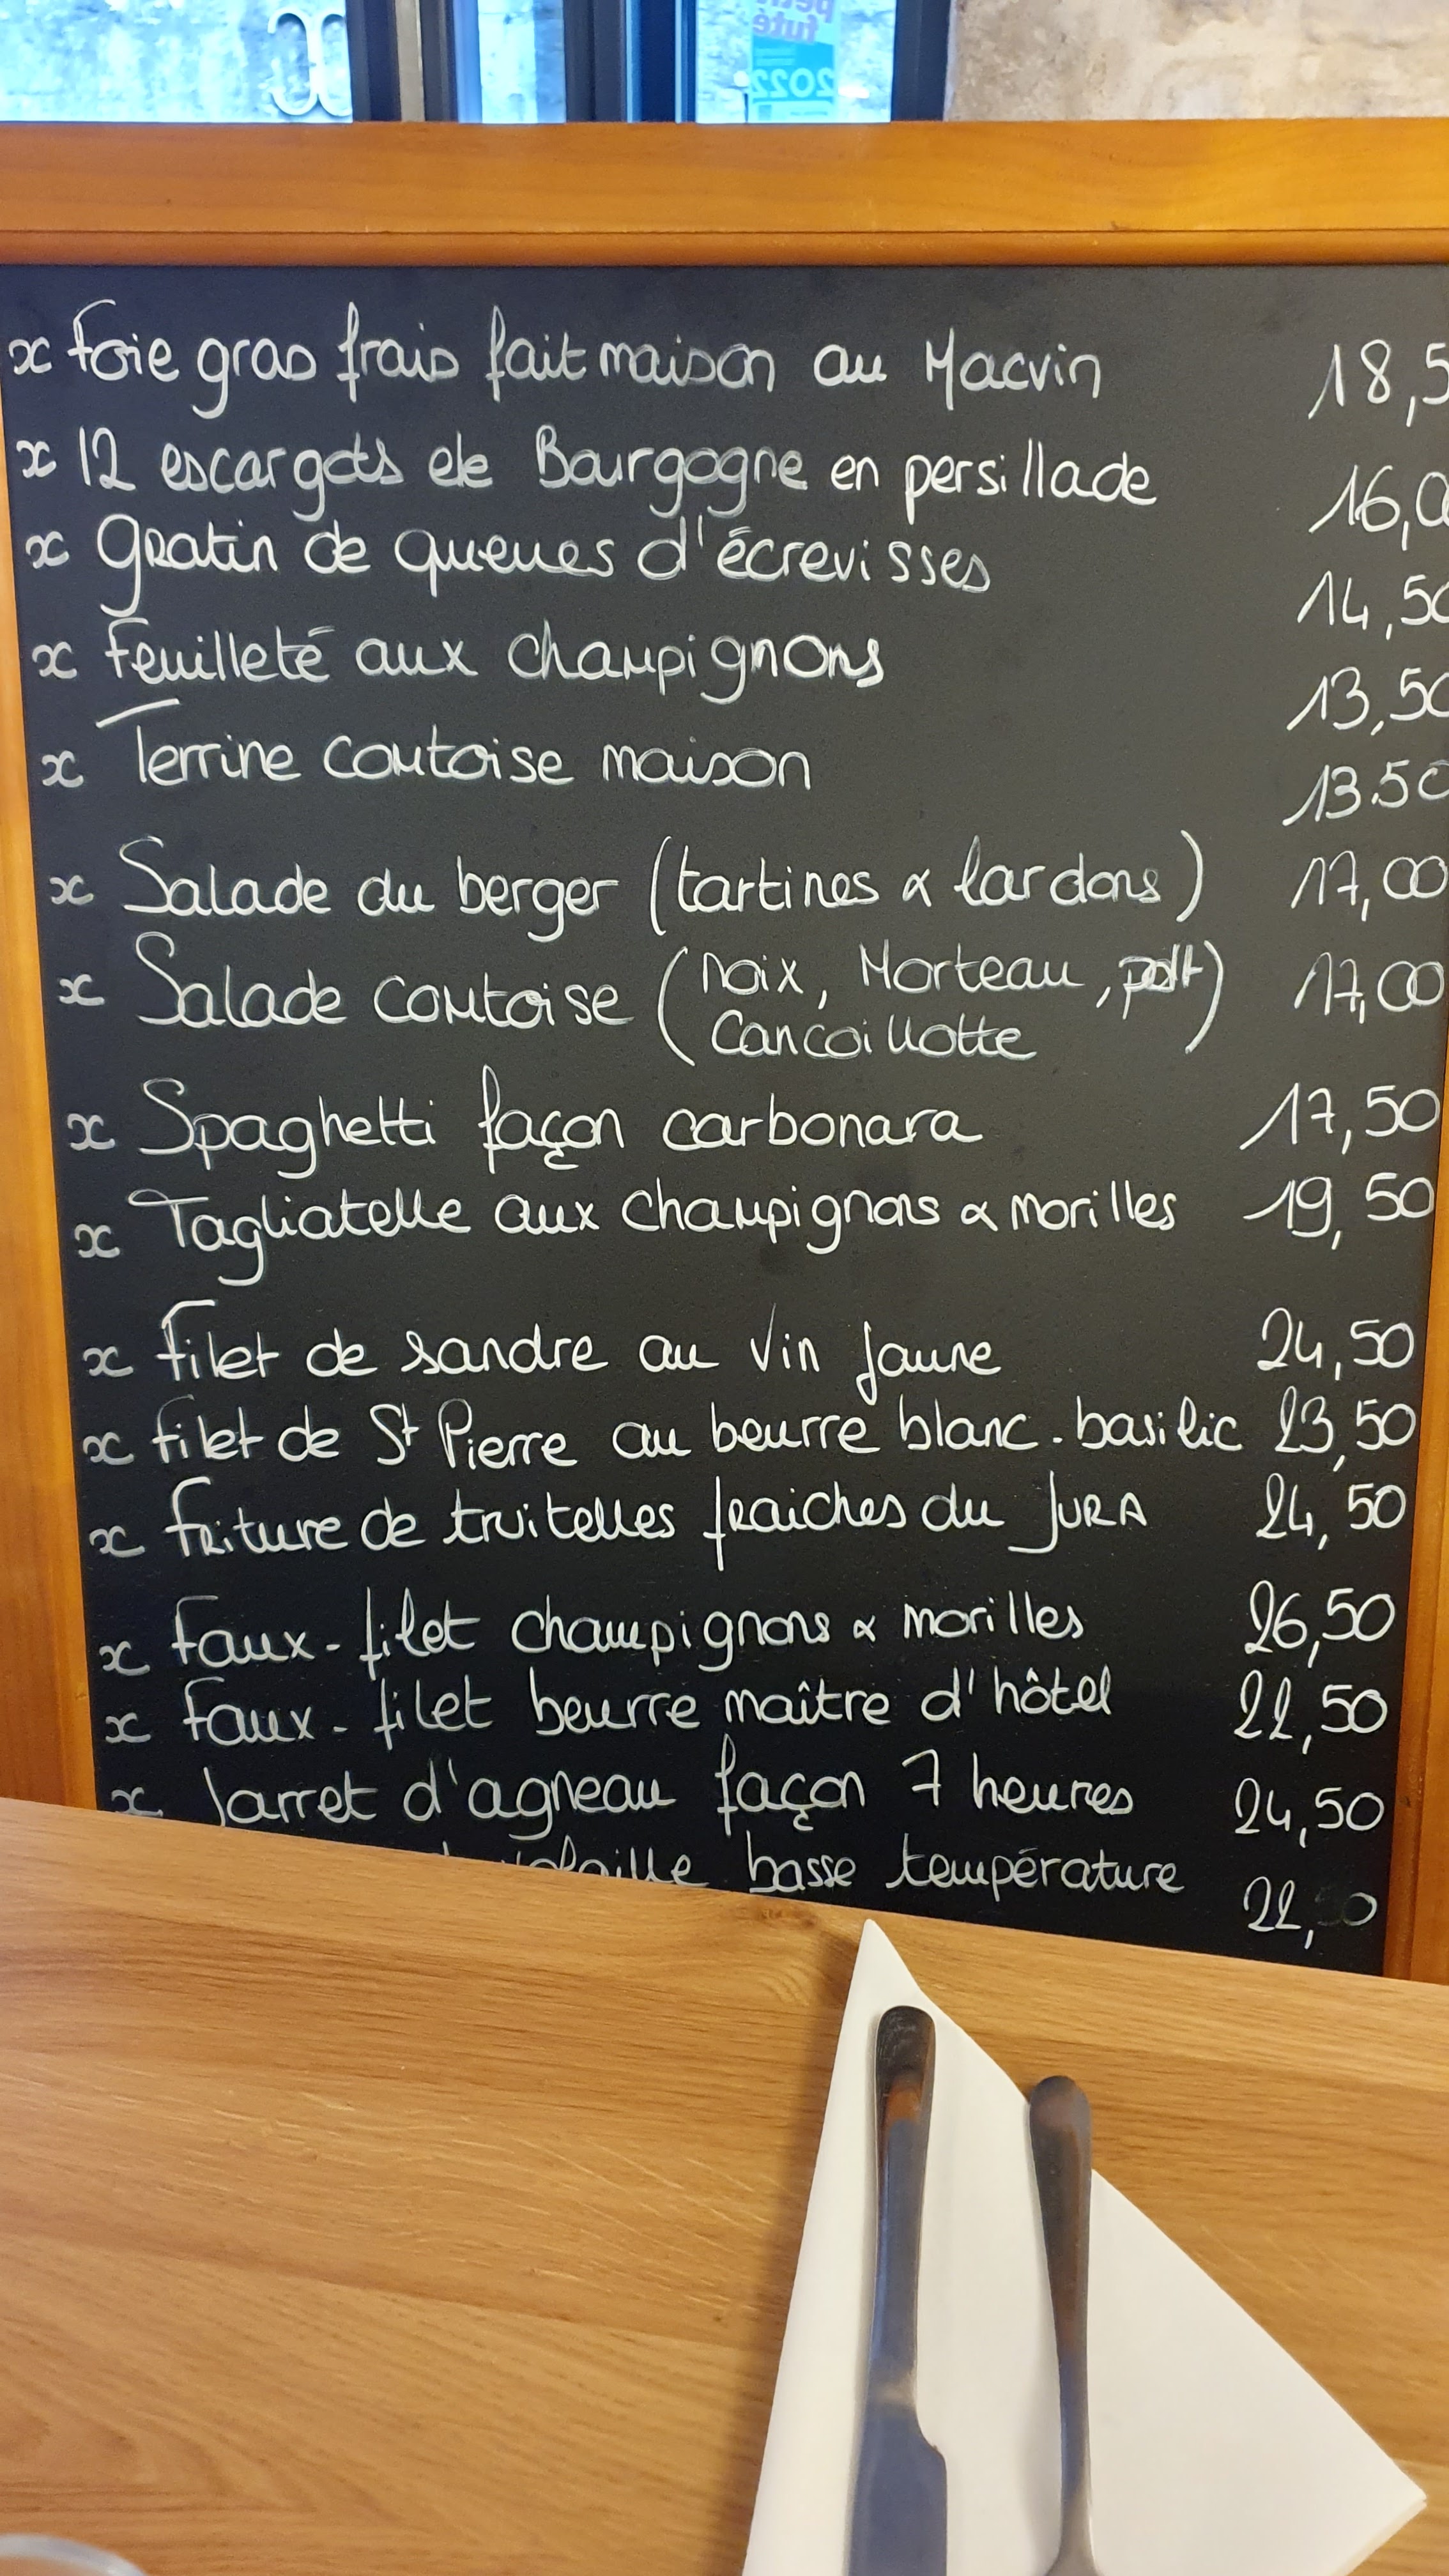 petit
futé
2022
x Foie gras frais fait maison au Macvin 18,5
x 12 escargots de Bourgogne en persillade 16,0
x Gratin de queues d'écrevisses 14,50
x Feuilleté aux champignons 13,50
x Terrine comtoise maison 13.50
x Salade du berger (tartines & lardons) 17,00
x Salade comtoise (noix, Morteau, 17,00
Cancoillotte)
x Spaghetti façon carbonara 17,50
x Tagliatelle aux champignons & morilles 19,50
x Filet de sandre au vin jaune 24,50
x filet de St Pierre au beurre blanc-basilic 23,50
x Friture de truitelles fraiches du JURA 24,50
x Faux-filet champignons & morilles 26,50
x Faux-filet beurre maître d'hôtel 22,50
x Jarret d'agneau façon 7 heures 24,50
volaille basse température 22,50